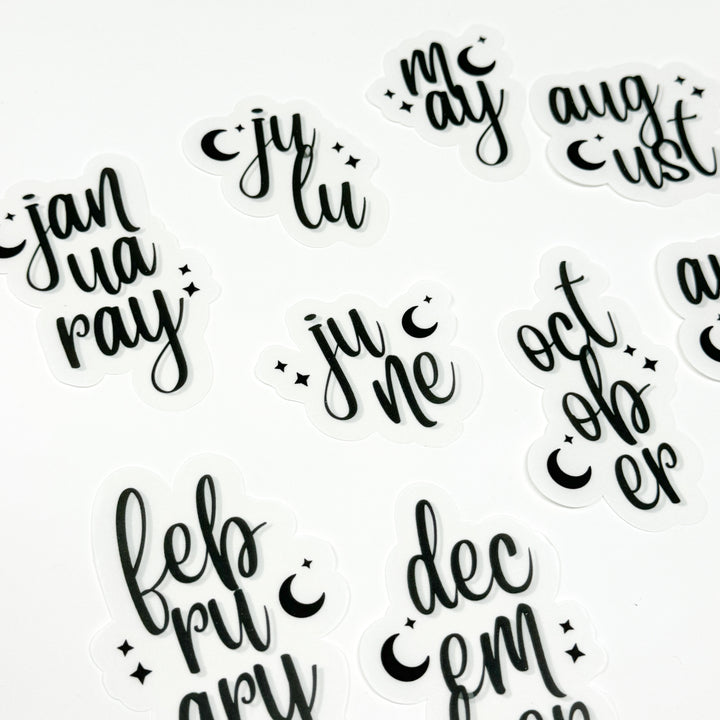 m
ay
aug
ust
ju
lu
jan
ua
ray
ju
ne
oct
ob
er
au
feb
ru
ary
dec
em